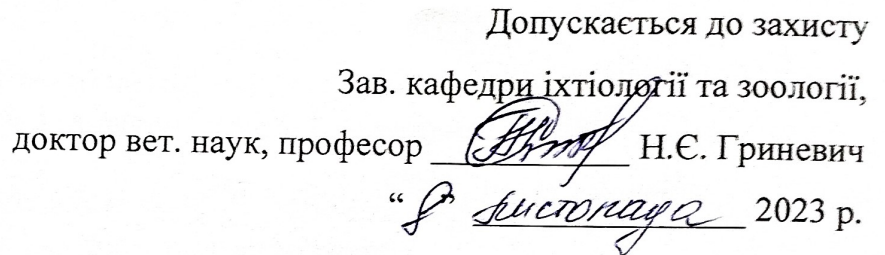 Допускається до захисту
Зав. кафедри іхтіології та зоології,
доктор вет. наук, професор ____________ Н.Є. Гриневич
“ 8 ” листопада 2023 р.